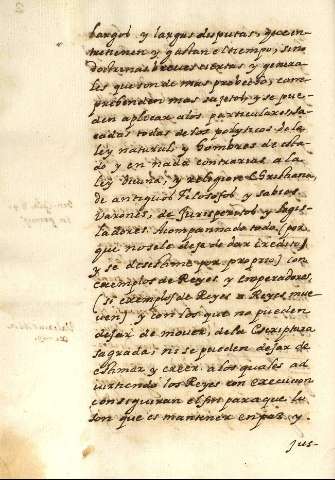 largos y largas disputas, que en-
tretienen y gastan el tiempo, sino
doctrinas breves ciertas y genera
les que son de mas probecho, com
prehenden mas sujetos, y se pue
den aplicar a los particulares, sa
cadas todas de los polyticos de la
ley natural y hombres de esta
do y en nada contrarias a la
ley Divina, y religion Christiana,
de antiguos Filosofos y sabios
Varones, de Jurisperitos y Legis
ladores. Acompañado todo (por
que no se le deje de dar credito,
y se destime por proprio) con
exemplos de Reyes y Emperadores,
(si exemplos de Reyes a Reyes mue
ven) y con los que no pueden
dejar de mover, de la Escriptura
sagrada; ni se pueden dejar de
estimar y creer a los quales ad
virtiendo los Reyes con execucion
conseguiran el fin para que lo
son que es mantener en paz y
jus-